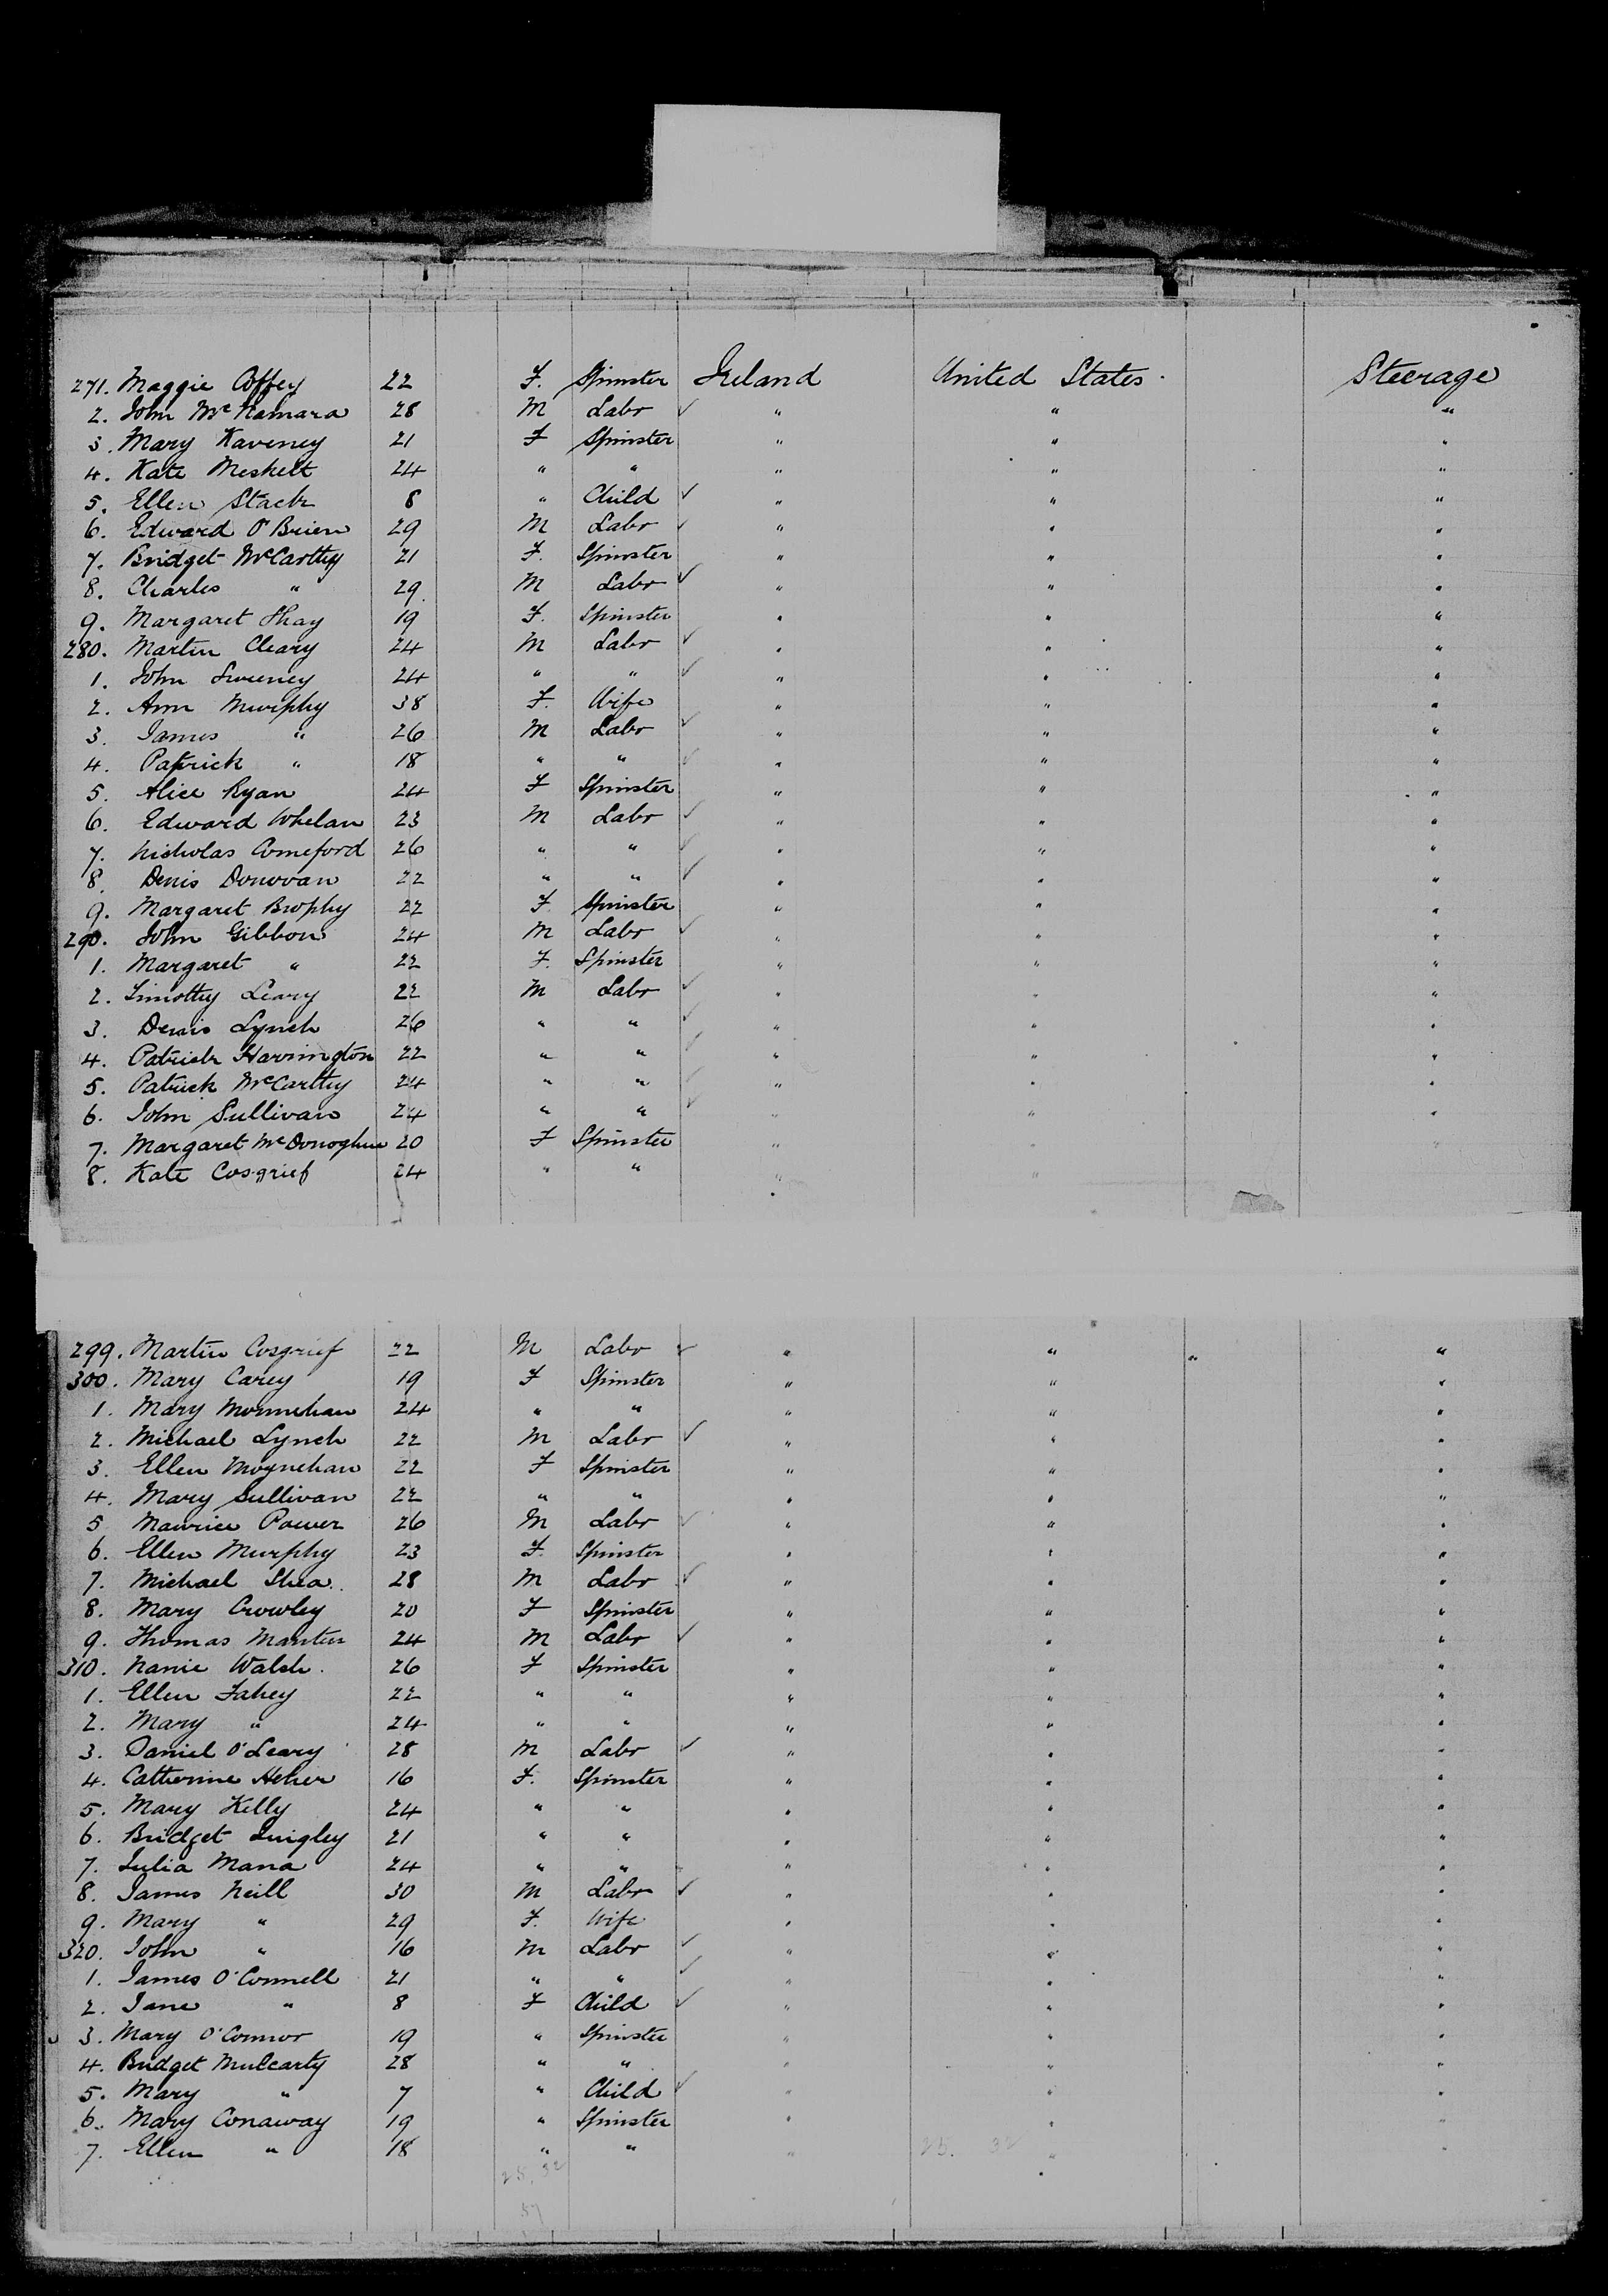 271. Maggie Coffey 22 F. Spinster Ireland United States. Steerage
2. John McNamara 28 M Labr ✓ " " "
3. Mary Kaveney 21 F Spinster " " "
4. Kate Meskelt 24 " " " " "
5. Ellen Stack 8 " Child ✓ " " "
6. Edward O'Brien 29 M Labr ✓ " " "
7. Bridget McCarthy 21 F. Spinster " " "
8. Charles " 29 M Labr ✓ " " "
9. Margaret Shay 19 F. Spinster " " "
280. Martin Cleary 24 M Labr ✓ " " "
1. John Sweeney 24 " " ✓ " " "
2. Ann Murphy 38 F. Wife " " "
3. James " 26 M Labr ✓ " " "
4. Patrick " 18 " " ✓ " " "
5. Alice Ryan 24 F Spinster " " "
6. Edward Whelan 23 M Labr ✓ " " "
7. Nicholas Comeford 26 " " ✓ " " "
8. Denis Donovan 22 " " ✓ " " "
9. Margaret Brophy 22 F Spinster " " "
290. John Gibbon 24 M Labr ✓ " " "
1. Margaret " 22 F. Spinster " " "
2. Timothy Leary 22 M Labr ✓ " " "
3. Denis Lynch 26 " " ✓ " " "
4. Patrick Harrington 22 " " ✓ " " "
5. Patrick McCarthy 24 " " ✓ " " "
6. John Sullivan 24 " " ✓ " " "
7. Margaret McDonoghue 20 F Spinster " " "
8. Kate Cosgrief 24 " " " "
299. Martin Cosgrief 22 M Labr ✓ " " " "
300. Mary Carey 19 F Spinster " " "
1. Mary Monnehan 24 " " " " "
2. Michael Lynch 22 M Labr ✓ " " "
3. Ellen Moynehan 22 F Spinster " " "
4. Mary Sullivan 22 " " " " "
5 Maurice Power 26 M Labr ✓ " " "
6. Ellen Murphy 23 F. Spinster " " "
7. Michael Shea. 28 M Labr ✓ " " "
8. Mary Crowley 20 F Spinster " " "
9. Thomas Martin 24 M Labr ✓ " " "
310. Nanie Walsh. 26 F Spinster " " "
1. Ellen Fahey 22 " " " " "
2. Mary " 24 " " " " "
3. Daniel O'Leary 28 M Labr ✓ " " "
4. Catherine 16 F. Spinster " " "
5. Mary Kelly 24 " " " " "
6. Bridget Quigley 21 " " " " "
7. Julia Mana 24 " " " " "
8. James Neill 30 M Labr ✓ " " "
9. Mary " 29 F. Wife " " "
320. John " 16 M Labr ✓ " " "
1. James O'Connell 21 " " ✓ " " "
2. Jane " 8 F Child ✓ " " "
3. Mary O'Connor 19 " Spinster " " "
4. Bridget Mulcarty 28 " " " " "
5. Mary " 7 " Child ✓ " " "
6. Mary Conaway 19 " Spinster " " "
7. Ellen " 18 " " " " "
25. 32
25, 32
57